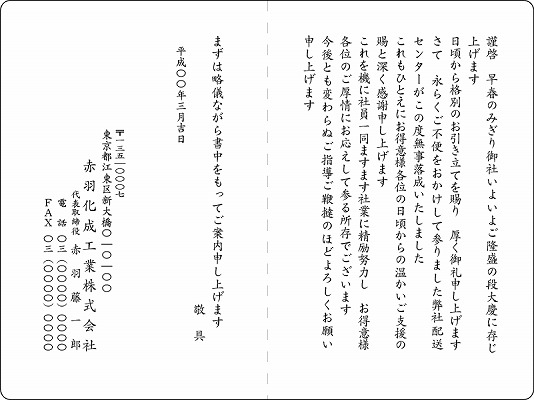 謹啓　早春のみぎり御社いよいよご隆盛の段大慶に存じ
上げます
日頃から格別のお引き立てを賜り　厚く御礼申し上げます
さて　永らくご不便をおかけして参りました弊社配送
センターがこの度無事落成いたしました
これもひとえにお得意様各位の日頃からの温かいご支援の
賜と深く感謝申し上げます
これを機に社員一同ますます社業に精励努力し　お得意様
各位のご厚情にお応えして参る所存でございます
今後とも変わらぬご指導ご鞭撻のほどよろしくお願い
申し上げます
まずは略儀ながら書中をもってご案内申し上げます
敬　具
平成〇〇年三月吉日
〒一三五ー〇〇〇七
東京都江東区新大橋〇ー〇ー〇〇
赤羽化成工業株式会社
代表取締役　赤羽藤一郎
電話　〇三（〇〇〇〇）〇〇〇〇
ＦＡＸ　〇三（〇〇〇〇）〇〇〇〇